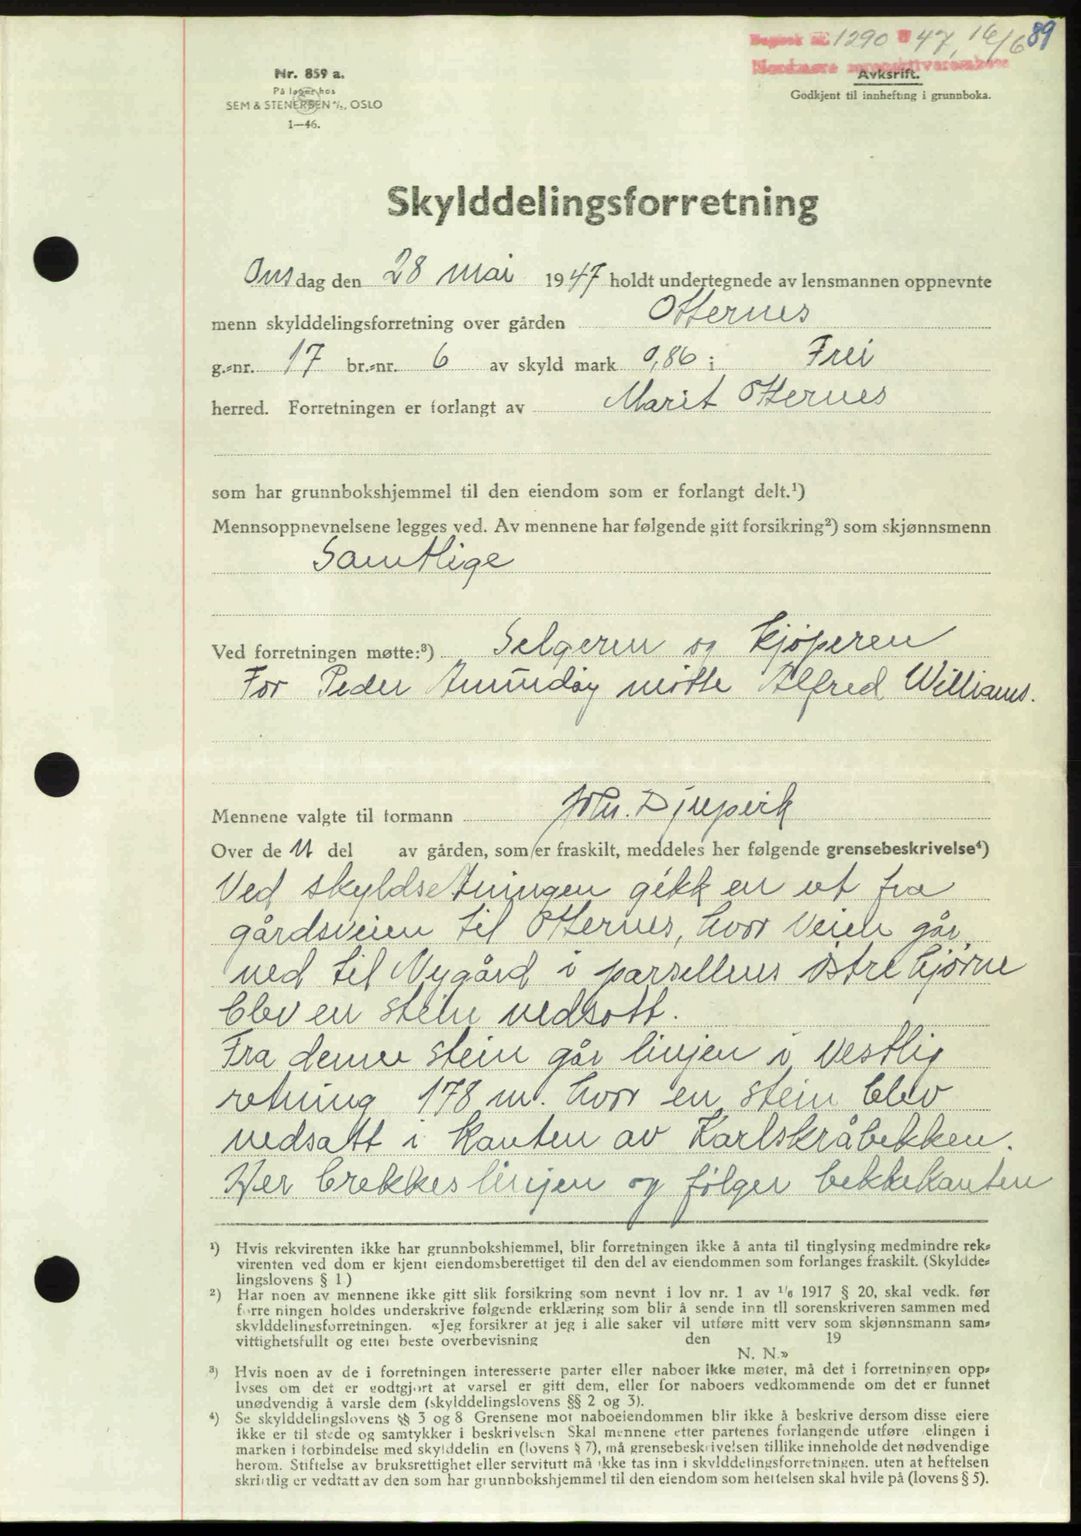 Dagbok nr. 1290 47, 16/6 89
Nordmøre sorenskriverembete
Nr. 859 a.
På lager hos
SEM & STENERSEN A/S, OSLO
1—46.
Avksrift.
Godkjent til innhefting i grunnboka.
Skylddelingsforretning
Onsdag den 28 mai 1947 holdt undertegnede av lensmannen oppnevnte
menn skylddelingsforretning over gården Otternes
g.-nr. 17 br.-nr. 6 av skyld mark 0,86 i Frei
herred. Forretningen er forlangt av Marit Otternes
som har grunnbokshjemmel til den eiendom som er forlangt delt.¹)
Mennsoppnevnelsene legges ved. Av mennene har følgende gitt forsikring²) som skjønnsmenn
Samtlige
Ved forretningen møtte:³) Selgeren og kjøperen
For Peder møtte Alfred Williams.
Mennene valgte til formann Joh. Djupvik
Over de n del av gården, som er fraskilt, meddeles her følgende grensebeskrivelse⁴)
Ved skyldsetningen gikk en ut fra
gårdsveien til Otternes, hvor veien går
ned til Nygård i parsellens østre hjørne
blev en stein nedsatt.
Fra denne stein går linjen i vestlig
retning 178 m. hvor en stein blev
nedsatt i kanten av Karlskråbekken.
Her brekkes linjen og følger bekkekanten
¹) Hvis rekvirenten ikke har grunnbokshjemmel, blir forretningen ikke å anta til tinglysing medmindre rek-
virenten ved dom er kjent eiendomsberettiget til den del av eiendommen som forlanges fraskilt. (Skyldde-
lingslovens § 1)
²) Har noen av mennene ikke gitt slik forsikring som nevnt i lov nr. 1 av 1/6 1917 § 20, skal vedk. før
forretningen holdes underskrive følgende erklæring som blir å sende inn til sorenskriveren sammen med
skylddelingsforretningen. «Jeg forsikrer at jeg i alle saker vil utføre mitt verv som skjønnsmann sam-
vittighetsfullt og etter beste overbevisning den 19
N. N.»
³) Hvis noen av de i forretningen interesserte parter eller naboer ikke møter, må det i forretningen opp-
lyses om det er godtgjort at varsel er gitt dem, eller for naboers vedkommende om det er funnet
unødvendig å varsle dem (skylddelingslovens §§ 2 og 3).
⁴) Se skylddelingslovens §§ 3 og 8. Grensene mot naboeiendommen blir ikke å beskrive dersom disse eiere
ikke er til stede og samtykker i beskrivelsen. Skal mennene etter partenes forlangende utføre delingen i
marken i forbindelse med skylddelingen (lovens § 7), må grensebeskrivelsen tillike inneholde det nødvendige
herom. Stiftelse av bruksrettighet eller servitutt må ikke tas inn i skylddelingsforretningen, uten at heftelsen
skriftlig er vedtatt av den som har grunnbokshjemmel til den eiendom som heftelsen skal hvile på (lovens § 5).